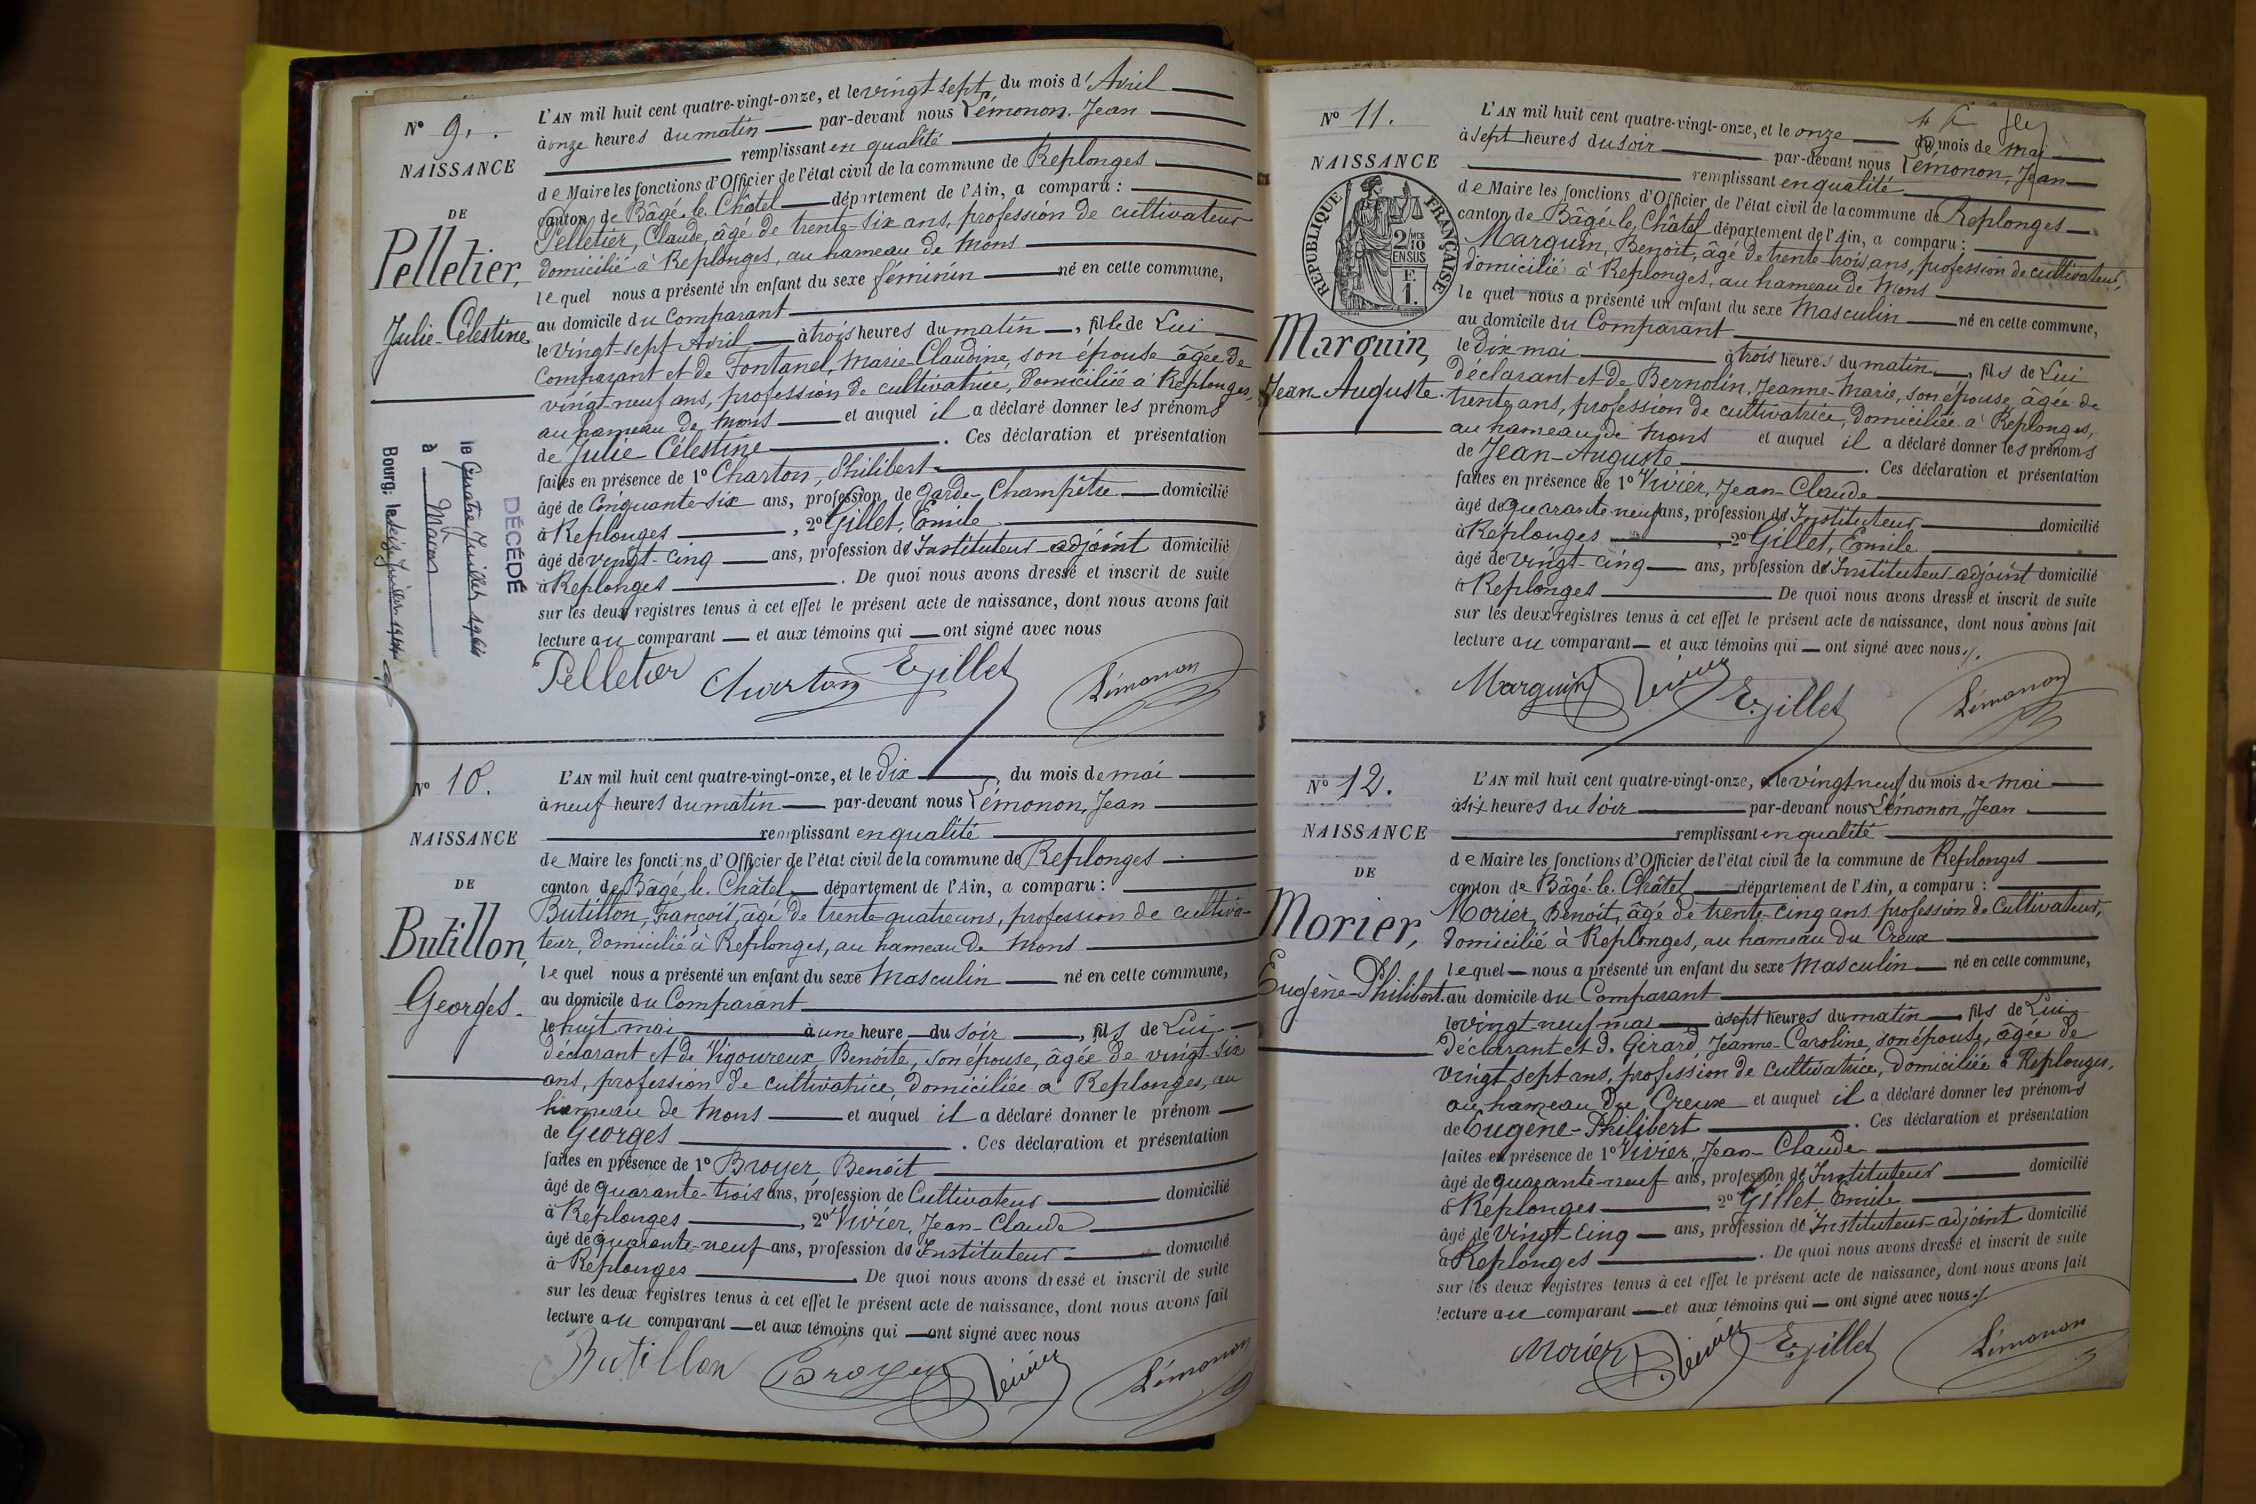 N° 9.
NAISSANCE
DE
Pelletier,
Julie-Célestine
L'AN mil huit cent quatre-vingt-onze, et le vingt-sept du mois d'Avril
à onze heures du matin par-devant nous Lémonon, Jean
remplissant en qualité
de Maire les fonctions d'Officier de l'état civil de la commune de Replonges
canton de Bâgé-le-Châtel département de l'Ain, a comparu :
Pelletier, Claude, âgé de trente-six ans, profession de cultivateur
domicilié à Replonges, au hameau de Mons
lequel nous a présenté un enfant du sexe féminin né en cette commune,
au domicile du Comparant
le vingt-sept Avril à trois heures du matin, fille de Lui
Comparant et de Fontanel, Marie-Claudine, son épouse âgée de
vingt-neuf ans, profession de cultivatrice, domiciliée à Replonges,
au hameau de Mons et auquel il a déclaré donner les prénoms
de Julie-Célestine. Ces déclaration et présentation
faites en présence de 1° Charton, Philibert
âgé de Cinquante-six ans, profession de Garde-Champêtre domicilié
à Replonges, 2° Gillet, Emile
âgé de vingt-cinq ans, profession d'Instituteur-adjoint domicilié
à Replonges. De quoi nous avons dressé et inscrit de suite
sur les deux registres tenus à cet effet le présent acte de naissance, dont nous avons fait
lecture au comparant et aux témoins qui ont signé avec nous
Pelletier Charton E. Gillet Lémonon
DÉCÉDÉ
le Quatre Juillet
à Mâcon
Bourg, le
N° 10.
NAISSANCE
DE
Butillon,
Georges.
L'AN mil huit cent quatre-vingt-onze, et le Dix du mois de mai
à neuf heures du matin par-devant nous Lémonon, Jean
remplissant en qualité
de Maire les fonctions d'Officier de l'état civil de la commune de Replonges
canton de Bâgé-le-Châtel département de l'Ain, a comparu :
Butillon, François, âgé de trente-quatre ans, profession de cultiva-
teur, domicilié à Replonges, au hameau de Mons
lequel nous a présenté un enfant du sexe Masculin né en cette commune,
au domicile du Comparant
le huit mai à une heure du soir, fils de Lui
déclarant et de Vigoureux, Benoite, son épouse, âgée de vingt-six
ans, profession de cultivatrice, domiciliée à Replonges, au
hameau de Mons et auquel il a déclaré donner le prénom
de Georges. Ces déclaration et présentation
faites en présence de 1° Broyer, Benoit
âgé de quarante-trois ans, profession de Cultivateur domicilié
à Replonges, 2° Vivier, Jean-Claude
âgé de quarante-neuf ans, profession d'Instituteur domicilié
à Replonges. De quoi nous avons dressé et inscrit de suite
sur les deux registres tenus à cet effet le présent acte de naissance, dont nous avons fait
lecture au comparant et aux témoins qui ont signé avec nous
Butillon Broyer Vivier Lémonon
N° 11.
NAISSANCE
RÉPUBLIQUE FRANÇAISE
2/10 EN SUS
F. 1.
Marguin,
Jean-Auguste.
L'AN mil huit cent quatre-vingt-onze, et le onze du mois de mai
à sept heures du soir par-devant nous Lémonon, Jean
remplissant en qualité
de Maire les fonctions d'Officier de l'état civil de la commune de Replonges
canton de Bâgé-le-Châtel département de l'Ain, a comparu :
Marguin, Benoit, âgé de trente-trois ans, profession de cultivateur,
domicilié à Replonges, au hameau de Mons
lequel nous a présenté un enfant du sexe Masculin né en cette commune,
au domicile du Comparant
le Dix mai à trois heures du matin, fils de Lui
déclarant et de Bernolin, Jeanne-Marie, son épouse, âgée de
trente ans, profession de cultivatrice, domiciliée à Replonges,
au hameau de Mons et auquel il a déclaré donner les prénoms
de Jean-Auguste. Ces déclaration et présentation
faites en présence de 1° Vivier, Jean-Claude
âgé de quarante-neuf ans, profession d'Instituteur domicilié
à Replonges, 2° Gillet, Emile
âgé de vingt-cinq ans, profession d'Instituteur-adjoint domicilié
à Replonges De quoi nous avons dressé et inscrit de suite
sur les deux registres tenus à cet effet le présent acte de naissance, dont nous avons fait
lecture au comparant et aux témoins qui ont signé avec nous.
Marguin Vivier E. Gillet Lémonon
N° 12.
NAISSANCE
DE
Morier,
Eugène-Philibert.
L'AN mil huit cent quatre-vingt-onze, et le vingt neuf du mois de mai
à six heures du soir par-devant nous Lémonon, Jean
remplissant en qualité
de Maire les fonctions d'Officier de l'état civil de la commune de Replonges
canton de Bâgé-le-Châtel département de l'Ain, a comparu :
Morier, Benoit, âgé de trente-cinq ans profession de Cultivateur,
domicilié à Replonges, au hameau du Creux
lequel nous a présenté un enfant du sexe Masculin né en cette commune,
au domicile du Comparant
le vingt-neuf mai à sept heures du matin, fils de Lui
déclarant et d. Girard Jeanne-Caroline, son épouse, âgée de
vingt sept ans, profession de cultivatrice, domiciliée à Replonges,
au hameau du Creux et auquel il a déclaré donner les prénoms
de Eugène-Philibert. Ces déclaration et présentation
faites en présence de 1° Vivier, Jean-Claude
âgé de quarante-neuf ans, profession d'Instituteur domicilié
à Replonges 2° Gillet Emile
âgé de Vingt-Cinq ans, profession d'Instituteur-adjoint domicilié
à Replonges. De quoi nous avons dressé et inscrit de suite
sur les deux registres tenus à cet effet le présent acte de naissance, dont nous avons fait
lecture au comparant et aux témoins qui ont signé avec nous
Morier Vivier E. Gillet Lémonon